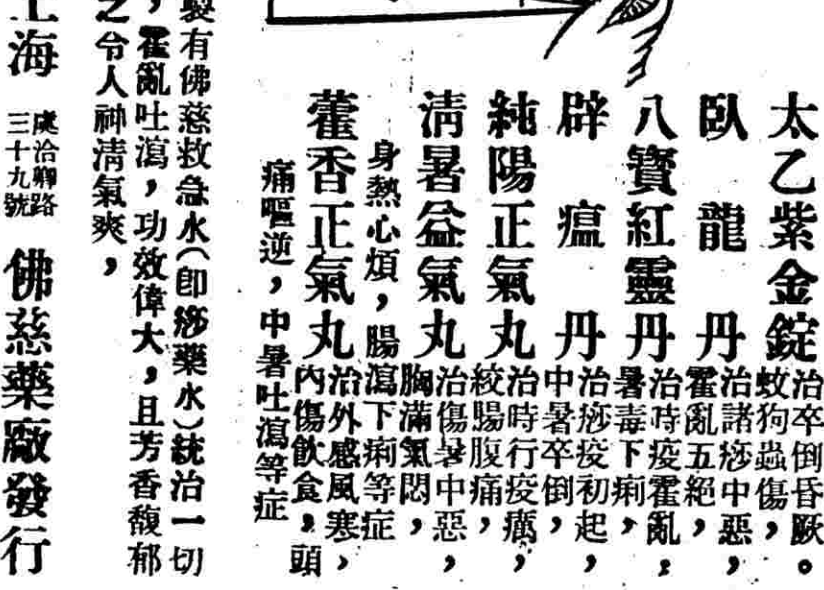 太乙紫金錠
治卒倒昏厥。
蚊狗蟲傷，
臥龍丹
治諸痧中惡，
霍亂五絕，
八寶紅靈丹
治時疫霍亂，
暑毒下痢，
辟瘟丹
治痧疫初起，
中暑卒倒，
純陽正氣丸
治時行疫癘，
絞腸腹痛，
清暑益氣丸
治傷暑中惡，
胸滿氣悶，
身熱心煩，腸瀉下痢等症
藿香正氣丸
治外感風寒，
內傷飲食，頭
痛嘔逆，中暑吐瀉等症
製有佛慈救急水（卽痧藥水）統治一切
，霍亂吐瀉，功效偉大，且芳香馥郁
之令人神清氣爽，
上海
虞洽卿路
三十九號
佛慈藥廠發行